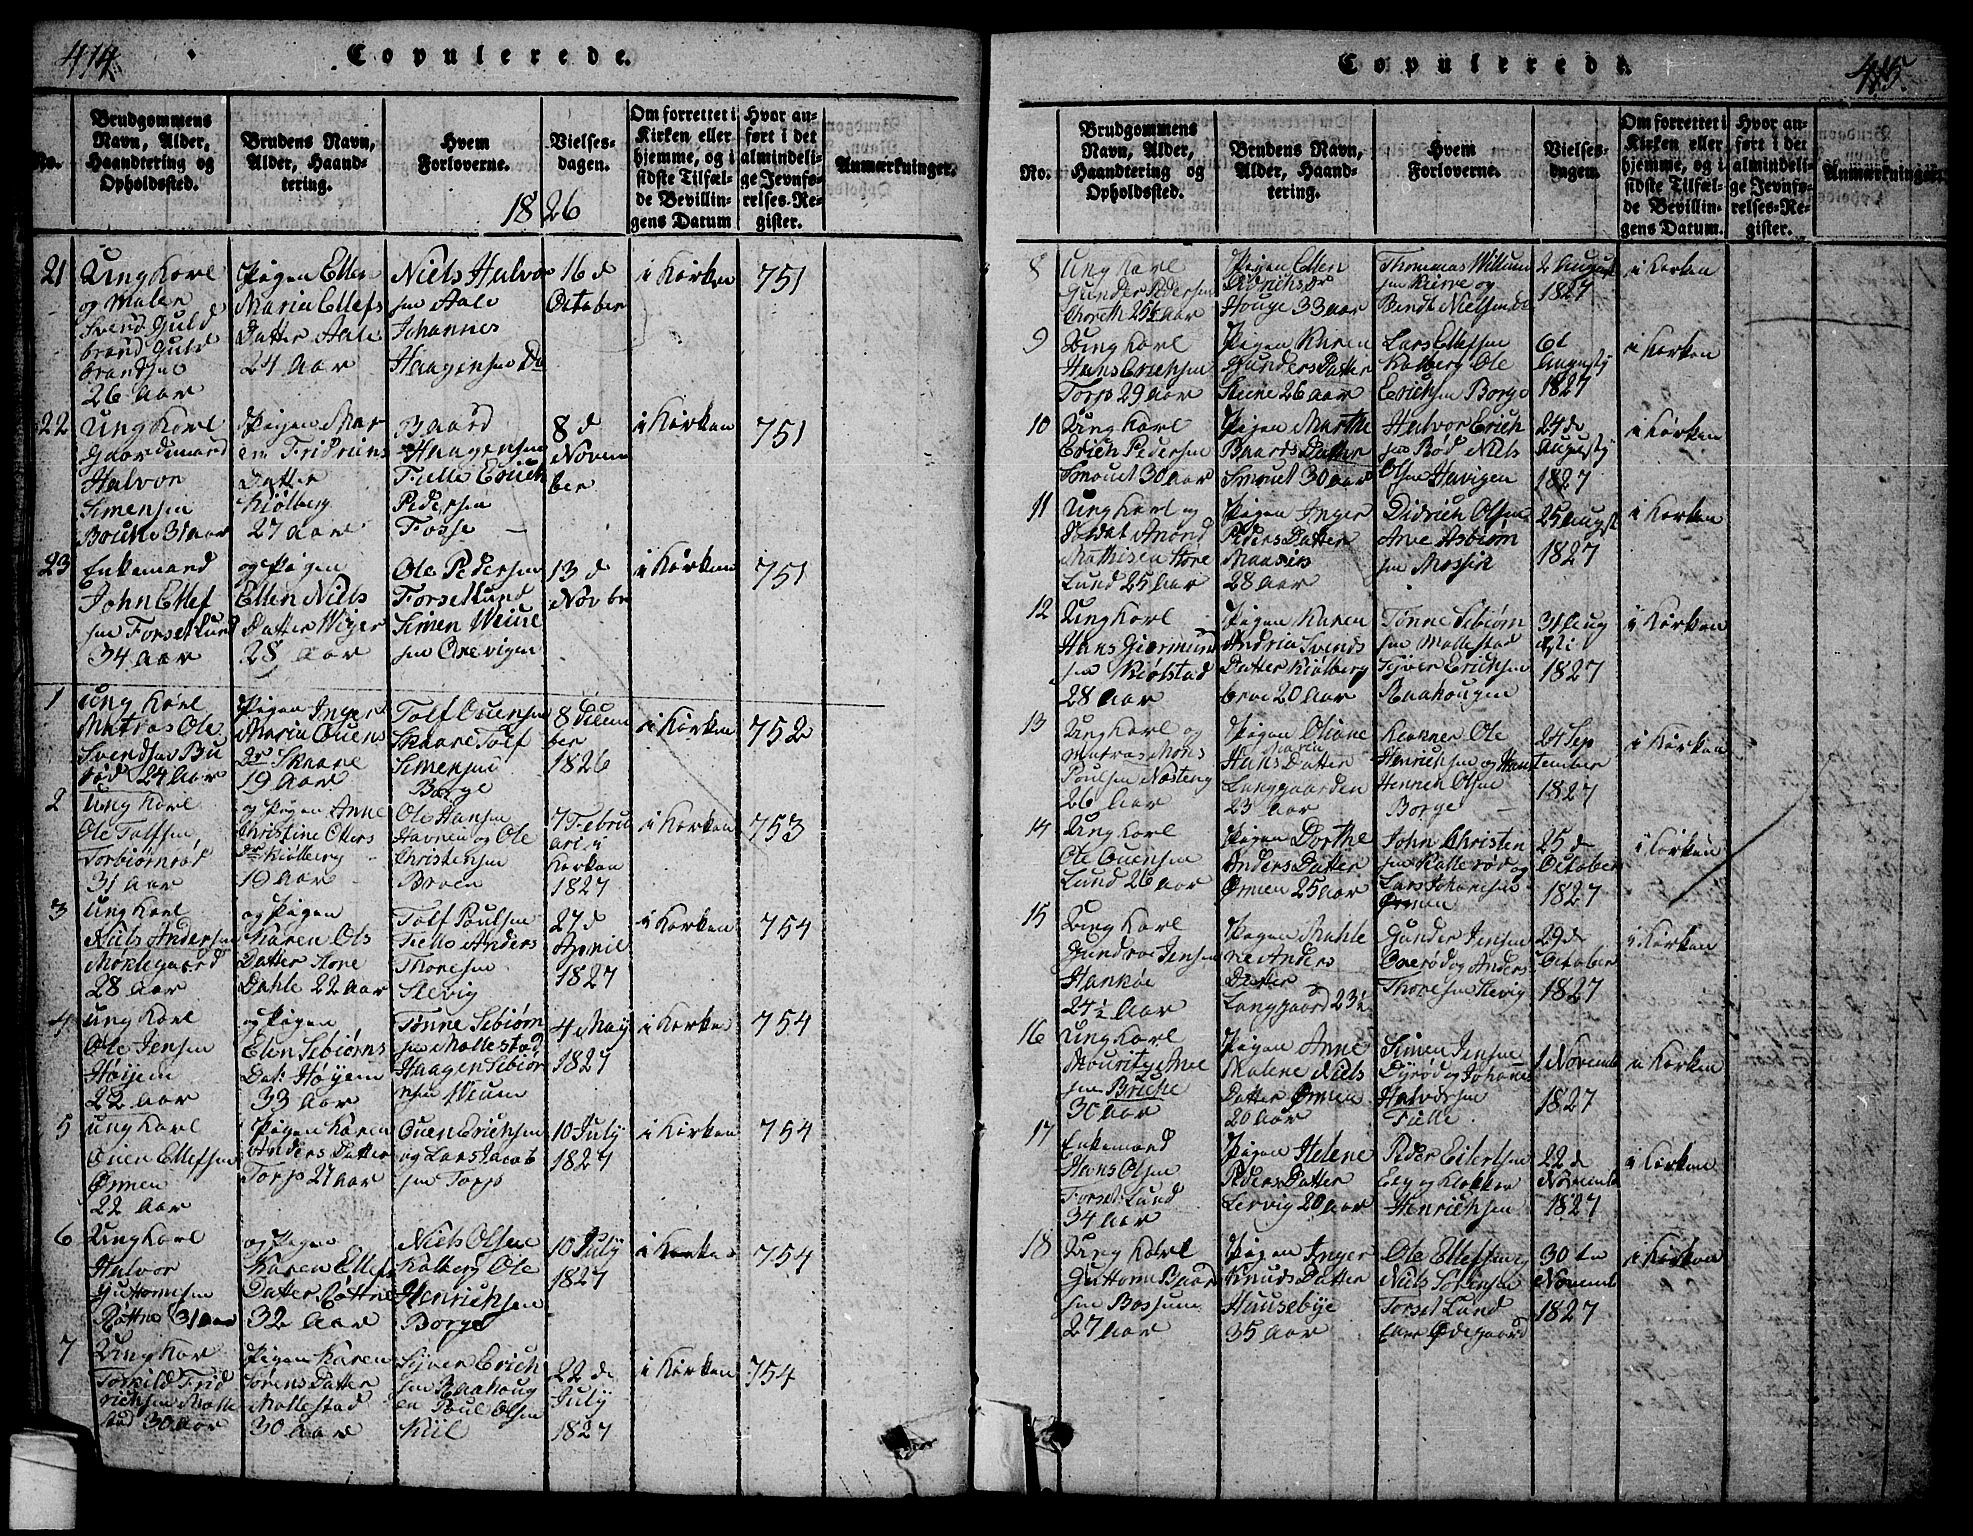 414.
Copulerede.
No.
Brudgommens
Navn, Alder,
Haandtering og
Opholdssted.
Brudens Navn,
Alder, Haand-
tering.
Hvem
Forloverne.
Vielses-
dagen.
Om forrettet i
Kirken eller
hjemme, og i
sidste Tilfæl-
de Bevillin-
gens Datum
Hvor an-
ført i det
almindeli-
ge Jevnfø-
relses-Re-
gister.
Anmærkninger.
1826
21
Ung Karl
og Maler
Svend Guld
brand Guld
brandsen
26 Aar
Pigen Ellen
Maria Ellefs
Datter Aale
24 Aar
Niels Halvor
sen Aale
Johannes
Haagensen
16 d
October
i Kirken
751
22
Ung Karl
Gaardmand
Halvor
Simensen
31 aar
Pigen Mar
en Fridrichs
Datter
Kiølberg
27 Aar
Baard
Haagensen
Fielle Erich
Pedersen
Fosse
8 d
Novem
ber
i Kirken
751
23
Enkemand
John Ellef
sen Forsetlund
34 aar
og Pigen
Ellen Niels
Datter
28 Aar
Ole Pedersen
Forsetlund
Simen
sen Orevigen
13 d
Novbr
i Kirken
751
1
Ung Karl
Matros Ole
Svendsen Bu
rød 24 Aar
Pigen Inger
Maria Ouens
Dr Skaare
19 Aar
Tolf Ouensen
Skaare Tolf
Simensen
Borge
8
ber
1826
i Kirken
752
2
Ung Karl
Ole Tolfsen
Torbiørnrød
31 Aar
og Pigen Anne
Christine
Dr Kiølberg
19 Aar
Ole Hansen
Havnen og Ole
Christensen
Broen
7 Febru
ari i
Kirken
1827
i Kirken
753
3
Ung Karl
Niels Andersen
Moklegaard
28 Aar
og Pigen
Karen Ols
Datter Store
Dahle 22 Aar
Tolf Poulsen
Anders
Thoresen
Slevig
27 d
April
1827
i Kirken
754
4
Ung Karl
Ole Jensen
Høyem
22 Aar
og Pigen
Elen Sebiørns
Dat. Høyem
33 Aar
Tønne Sebiørn
sen Mollestad
Haagen Sebiør
nsen
4 May
1827
i Kirken
754
5
Ung Karl
Ouen Ellefsen
Ørmen
22 Aar
Pigen Karen
Anders Datter
Torp 27 aar
Ouen Erichsen
og Lars Jacob
sen Torp
10 July
1827
i Kirken
754
6
Ung Karl
Halvor
Guttormsen
Røttne 31 aar
og Pigen
Karen Ellefs
Datter Røttne
32 Aar
Niels Olsen
Kolberg Ole
Henrichsen
Borge
10 July
1827
i Kirken
754
7
Ung Kar
Torkild Frid
richsen Molle
stad 30 Aar
Pigen Karen
Sørens Datter
Mollestad
30 Aar
Syver Erich
sen Raahoug
en Poul Olsen
Kiil
22 d
July
1827
i Kirken
754
415.
Copulerede.
No.
Brudgommens
Navn, Alder,
Haandtering og
Opholdssted.
Brudens Navn,
Alder, Haand-
tering.
Hvem
Forloverne.
Vielses-
dagen.
Om forrettet i
Kirken eller
hjemme, og i
sidste Tilfæl-
de Bevillin-
gens Datum.
Hvor an-
ført i det
almindeli-
ge Jevnfø-
relses-Re-
gister.
Anmærkninger.
8
Ung Karl
Gunder Pedersen
25½ Aar
Pigen Ellen
Didrichsdr
Houge 33 aar
Thommas Willum
sen Kierre og
Bendt Nielsen
2 August
1827
i Kirken
9
Ung Karl
Hans Erichsen
Torp 29 aar
Pigen Karen
Gunders Datter
26 aar
Lars Ellefsen
Kolberg Ole
Erichsen Borge
6t
Augusty
1827
i Kirken
10
Ung Karl
Erich Pedersen
Smouet 30 aar
Pigen Marthe
Baards Datter
Smouet 30 aar
Halvor Erich
sen Rød Niels
Olsen Havigen
24 de
Augusty
1827
i Kirken
11
Ung Karl og
Soldat Amond
Mathisen Hore
Lund 25 Aar
Pigen Inger
Peders Datter
28 aar
Didrich Olsen
Arve Asbiørn
sen Mossik
25 Augst
1827
i Kirken
12
Ung Karl
Hans Giermund
sen Kiølstad
28 Aar
Pigen Karen
Andria Svends
Datter Kiølberg
broe 20 Aar
Tønne Sebiørn
sen Mollestad
Syver Erichsen
Raahougen
31 Aug
sti
1827
i Kirken
13
Ung Karl og
Matros Mons
Poulsen
26 Aar
Pigen Oliane
Maria
Hans Datter
Langgaarden
23 aar
Klokker Ole
Henrichsen og
Henrich Olsen
Borge
24 Sep
tember
1827
i Kirken
14
Ung Karl
Ole Ouensen
Lund 26 aar
Pigen Dorthe
Anders Datter
Ørmen 25 aar
John Christen
sen Katterød og
Lars Johannesen
Ørmen
25 d
October
1827
i Kirken
15
Ung Karl
Jensen
Hankøe
24½ Aar
Pigen Mahle
ne Anders
Datter
Langgaard 23½
Gunder Jensen
Oxerød og Anders
Thoresen Slevig
29 d
October
1827
i Kirken
16
Ung Karl
Mouritz Arve
sen Briche
30 Aar
Pigen Anne
Malene Niels
Datter Ørmen
20 aar
Simen Jensen
Dyrød og Johannes
Halvorsen
Fielle
1 Novemb
1827
i Kirken
17
Enkemand
Hans Olsen
Forset Lund
34 Aar
Pigen Helene
Peders Datter
Lervig 20 aar
Peder Eilertsen
Elg og Klokker
Henrichsen
22 d
Novemb
1827
i Kirken
18
Ung Karl
Guttorm Baard
sen Bossum
27 Aar
Pigen Inger
Knuds Datter
Huusebye
35 Aar
Ole Ellefsen
Niels Sørensen
Forset Lund
Ødegaard
30 te
Novemb
1827
i Kirken